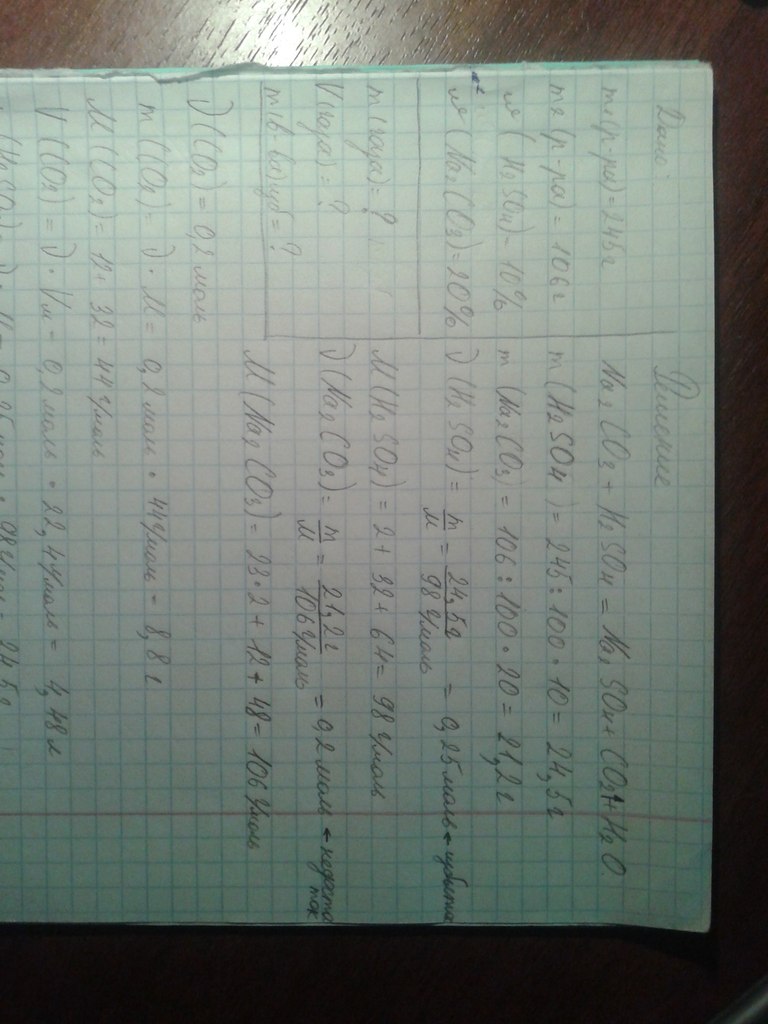 Дано:
m₁(р-ра) = 245г
m₂(р-ра) = 106г
w (H₂SO₄) = 10%
w (Na₂CO₃) = 20%
m(газа) = ?
V(газа) = ?
Решение
Na₂CO₃ + H₂SO₄ = Na₂SO₄ + CO₂↑ + H₂O
m (H₂SO₄) = 245 : 100 · 10 = 24,5г
m (Na₂CO₃) = 106 : 100 · 20 = 21,2г
ν (H₂SO₄) = m/M = 24,5г/98г/моль = 0,25моль ← избыток
M(H₂SO₄) = 2 + 32 + 64 = 98г/моль
ν(Na₂CO₃) = m/M = 21,2г/106г/моль = 0,2моль ← недоста
ток
M(Na₂CO₃) = 23·2 + 12 + 48 = 106г/моль
ν(CO₂) = 0,2моль
m(CO₂) = ν · M = 0,2моль · 44г/моль = 8,8г
M(CO₂) = 12 + 32 = 44г/моль
V(CO₂) = ν · Vм = 0,2моль · 22,4л/моль = 4,48л